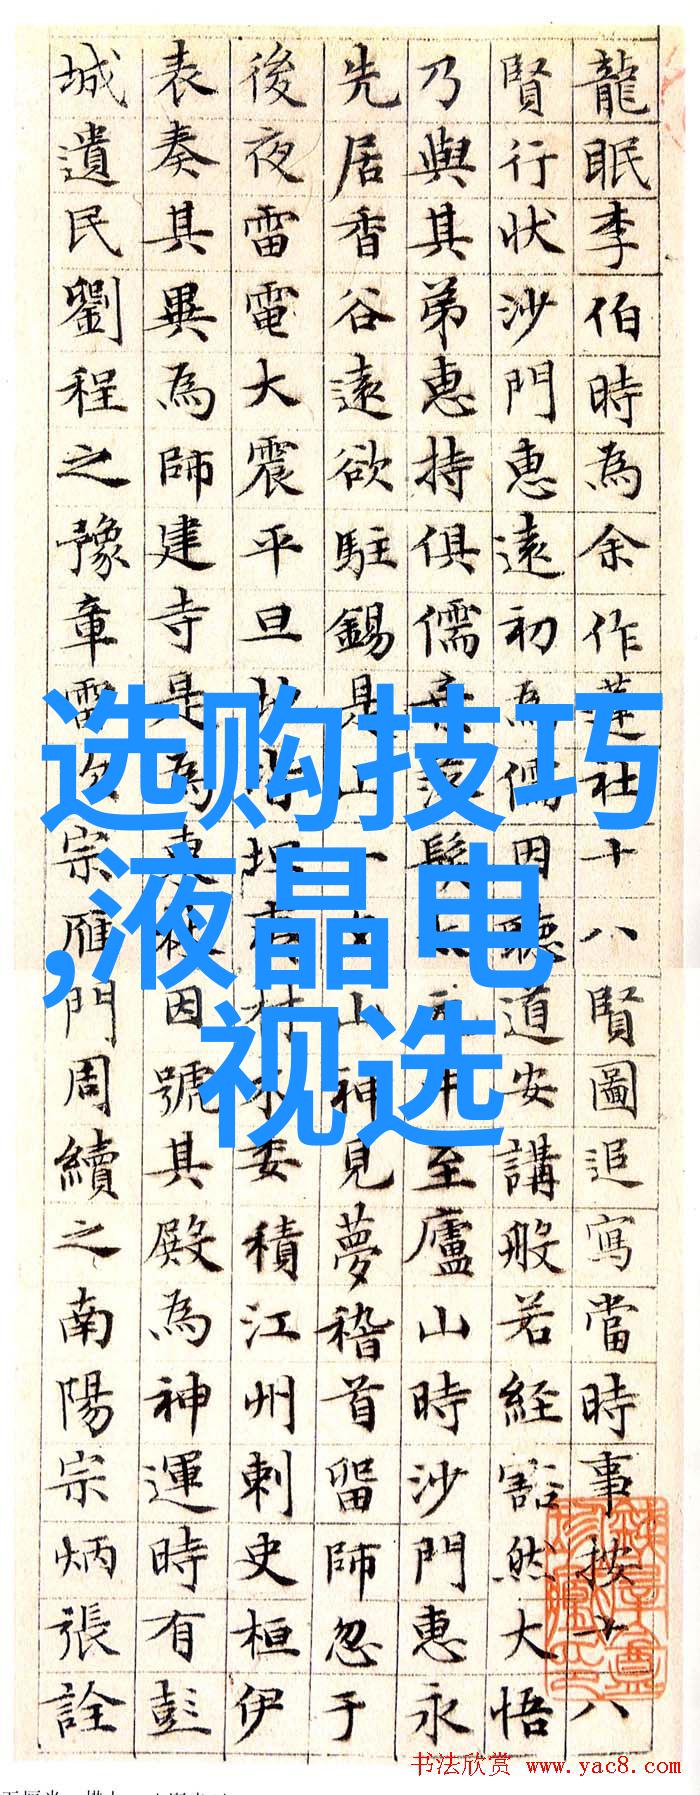 龍眠李伯時為余作蓮社十八賢圖追寫當時事按十八
賢行狀沙門惠遠初為儒因聽道安講般若經豁然大悟
乃與其弟惠持俱儒落髮至廬山時沙門惠永
先居香谷遠欲駐錫一山神見夢稽首留師忽于
後夜雷電大震平旦坦材木委積江州刺史桓伊
表奏其異為師建寺是為東因號其殿為神運時有彭
城遺民劉程之豫章雷宗雁門周續之南陽宗炳張詮
选购技巧
,液晶电
视选
书法欣赏 www.yac8.com